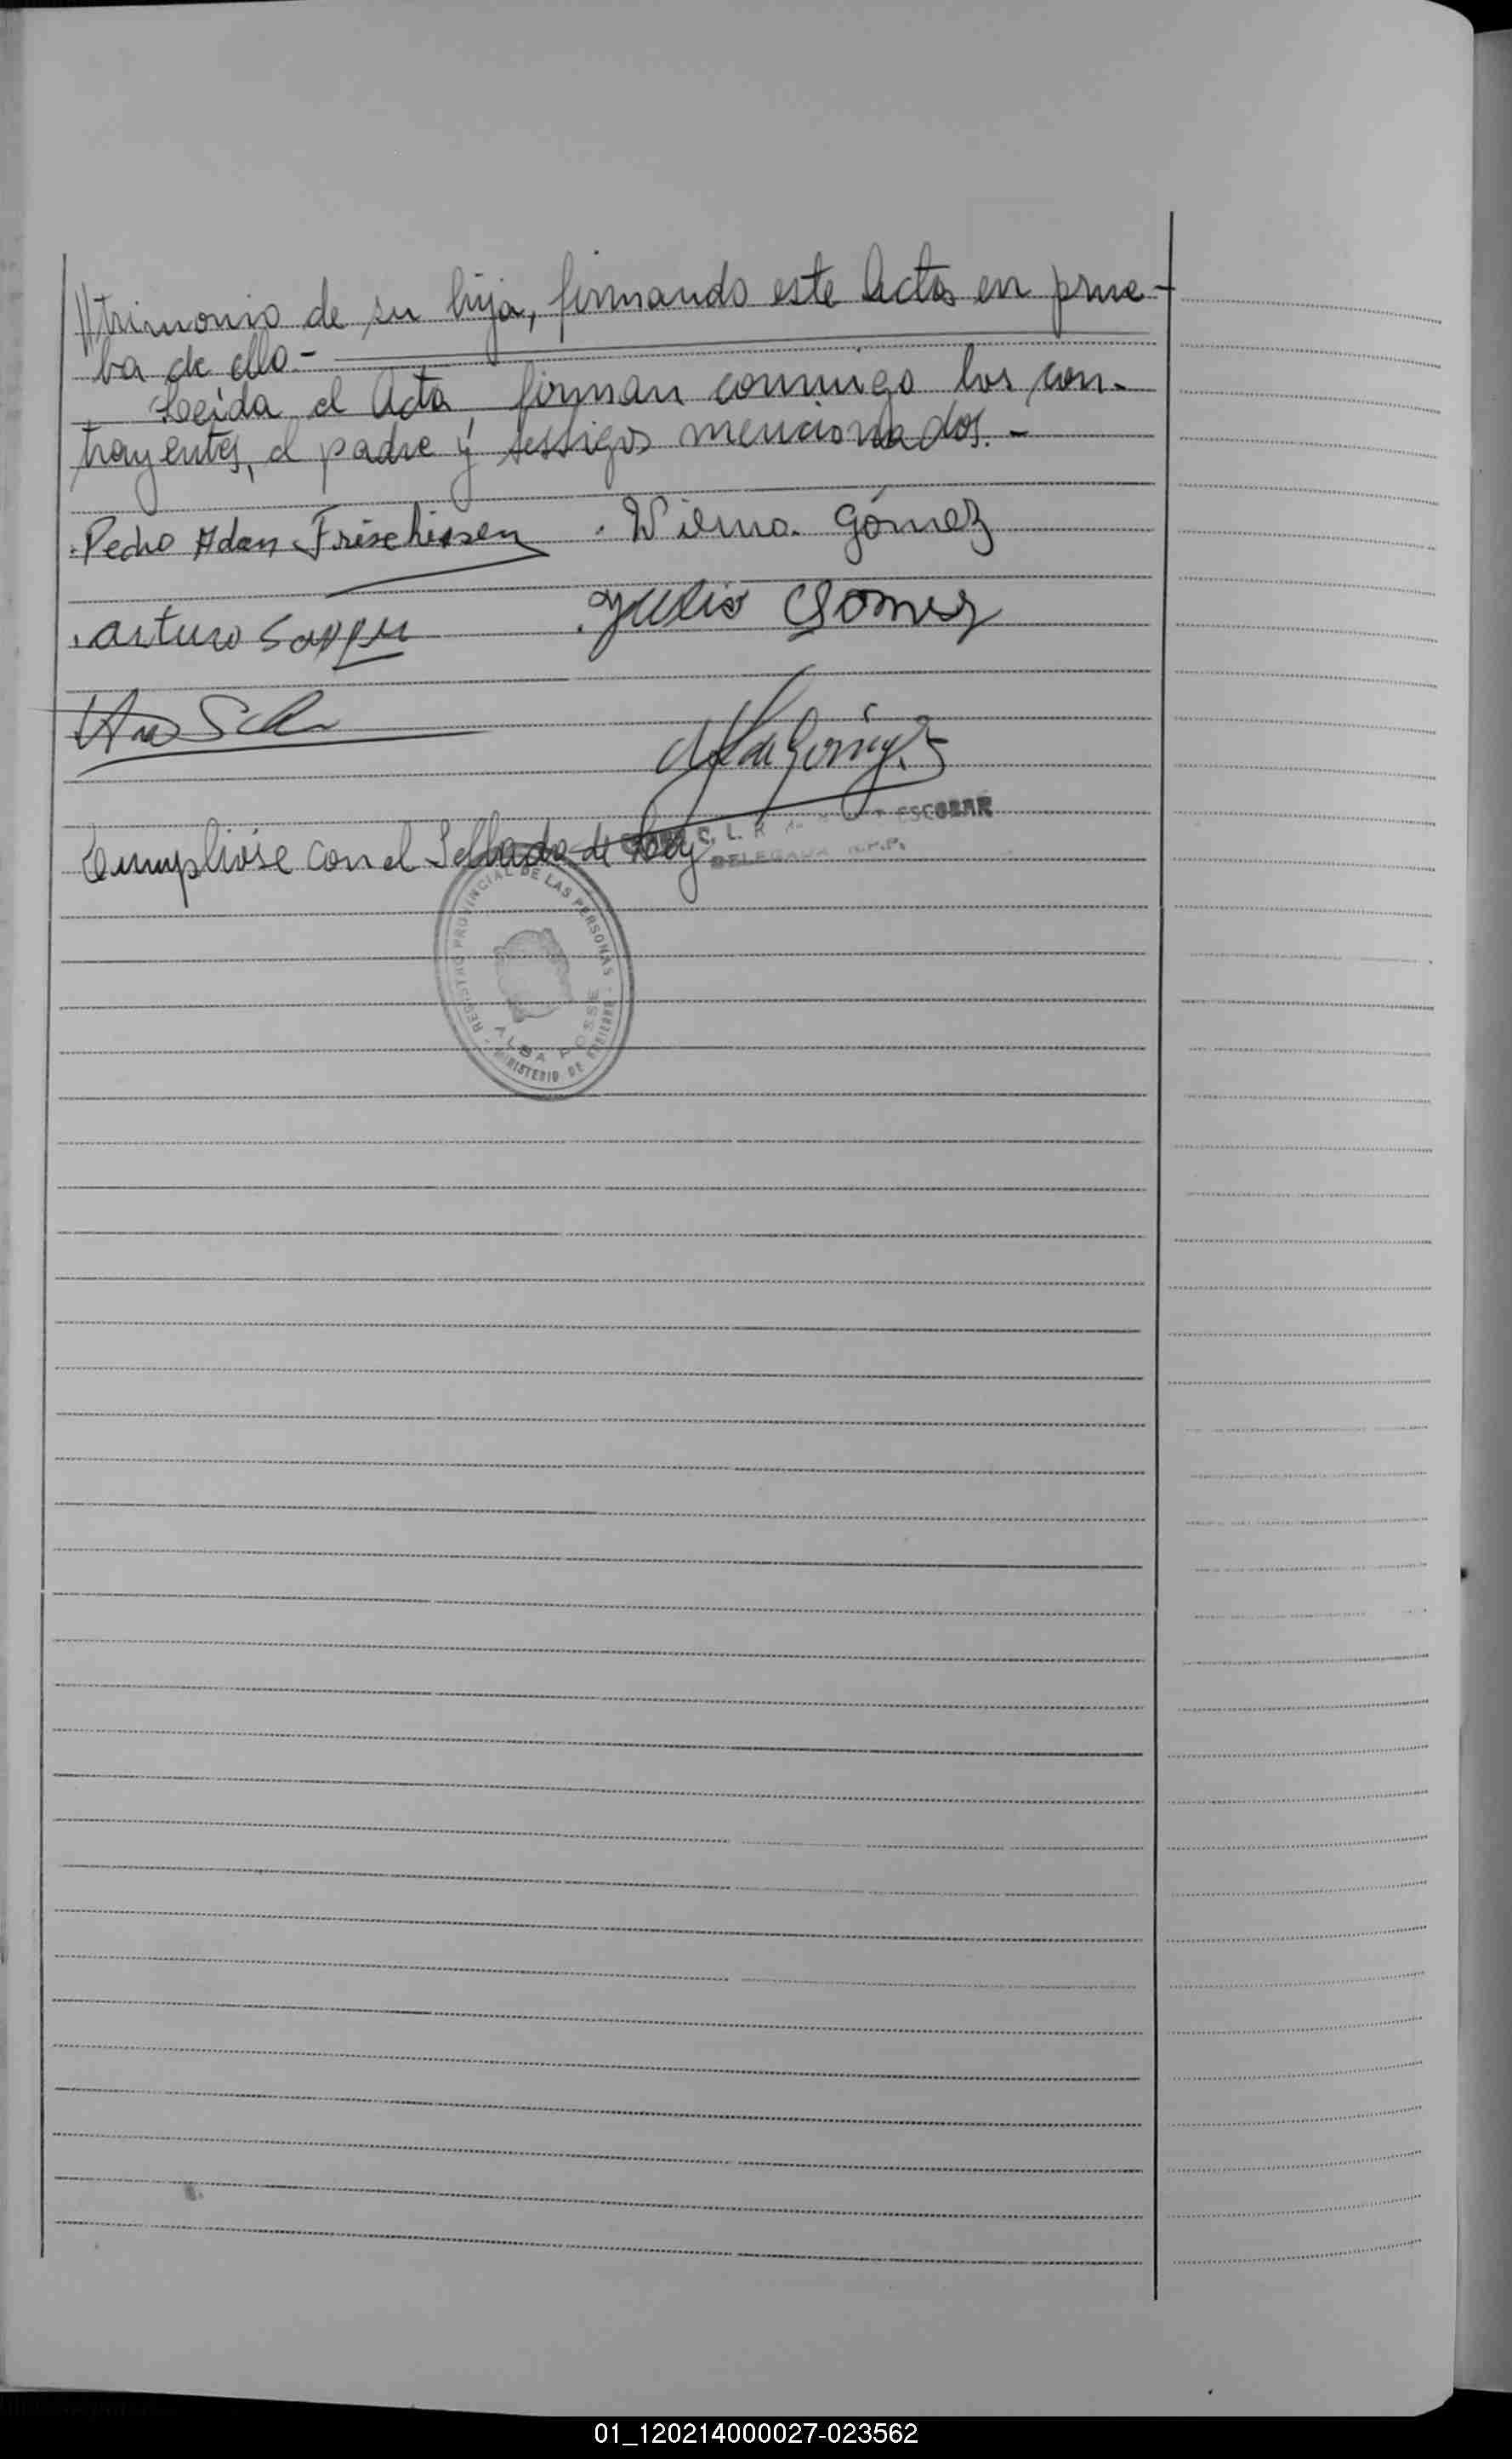 //trimonio de su hija, firmando este Acta en prue-
ba de ello.-
Leída el Acta, firman conmigo los con-
trayentes, el padre y testigos mencionados.-
Pedro Adan Frischissen . Wilma Gómez
. Arturo . Julio Gomez
Cumplióse con el Sellado de Ley
C. L. R. de ESCOBAR
DELEGADA R.P.P.
REGISTRO PROVINCIAL DE LAS PERSONAS - MINISTERIO DE GOBIERNO
ALBA POSSE
01_120214000027-023562